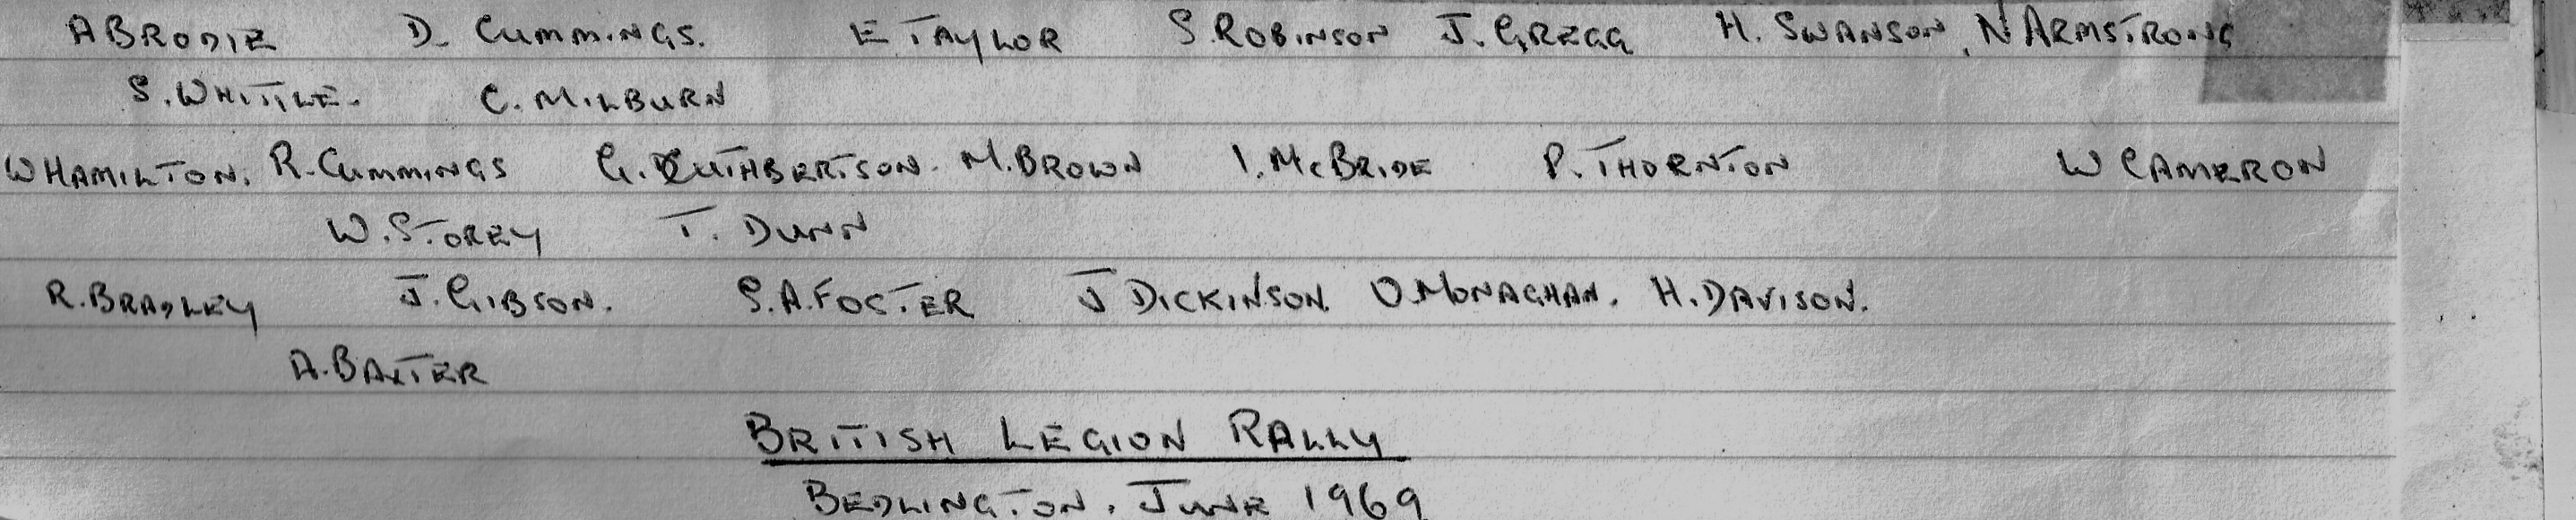 A BRODIE D. CUMMINGS. E TAYLOR S. ROBINSON J. GREGG H. SWANSON, N ARMSTRONG
S. WHITTLE. C. MILBURN
W HAMILTON. R. CUMMINGS G. CUTHBERTSON. M. BROWN I. McBRIDE P. THORNTON W CAMERON
W. STOREY T. DUNN
R. BRADLEY J. GIBSON. S. A. FOSTER J DICKINSON. O. MONAGHAN. H. DAVISON.
A. BAXTER
BRITISH LEGION RALLY
BEDLINGTON. JUNE 1969